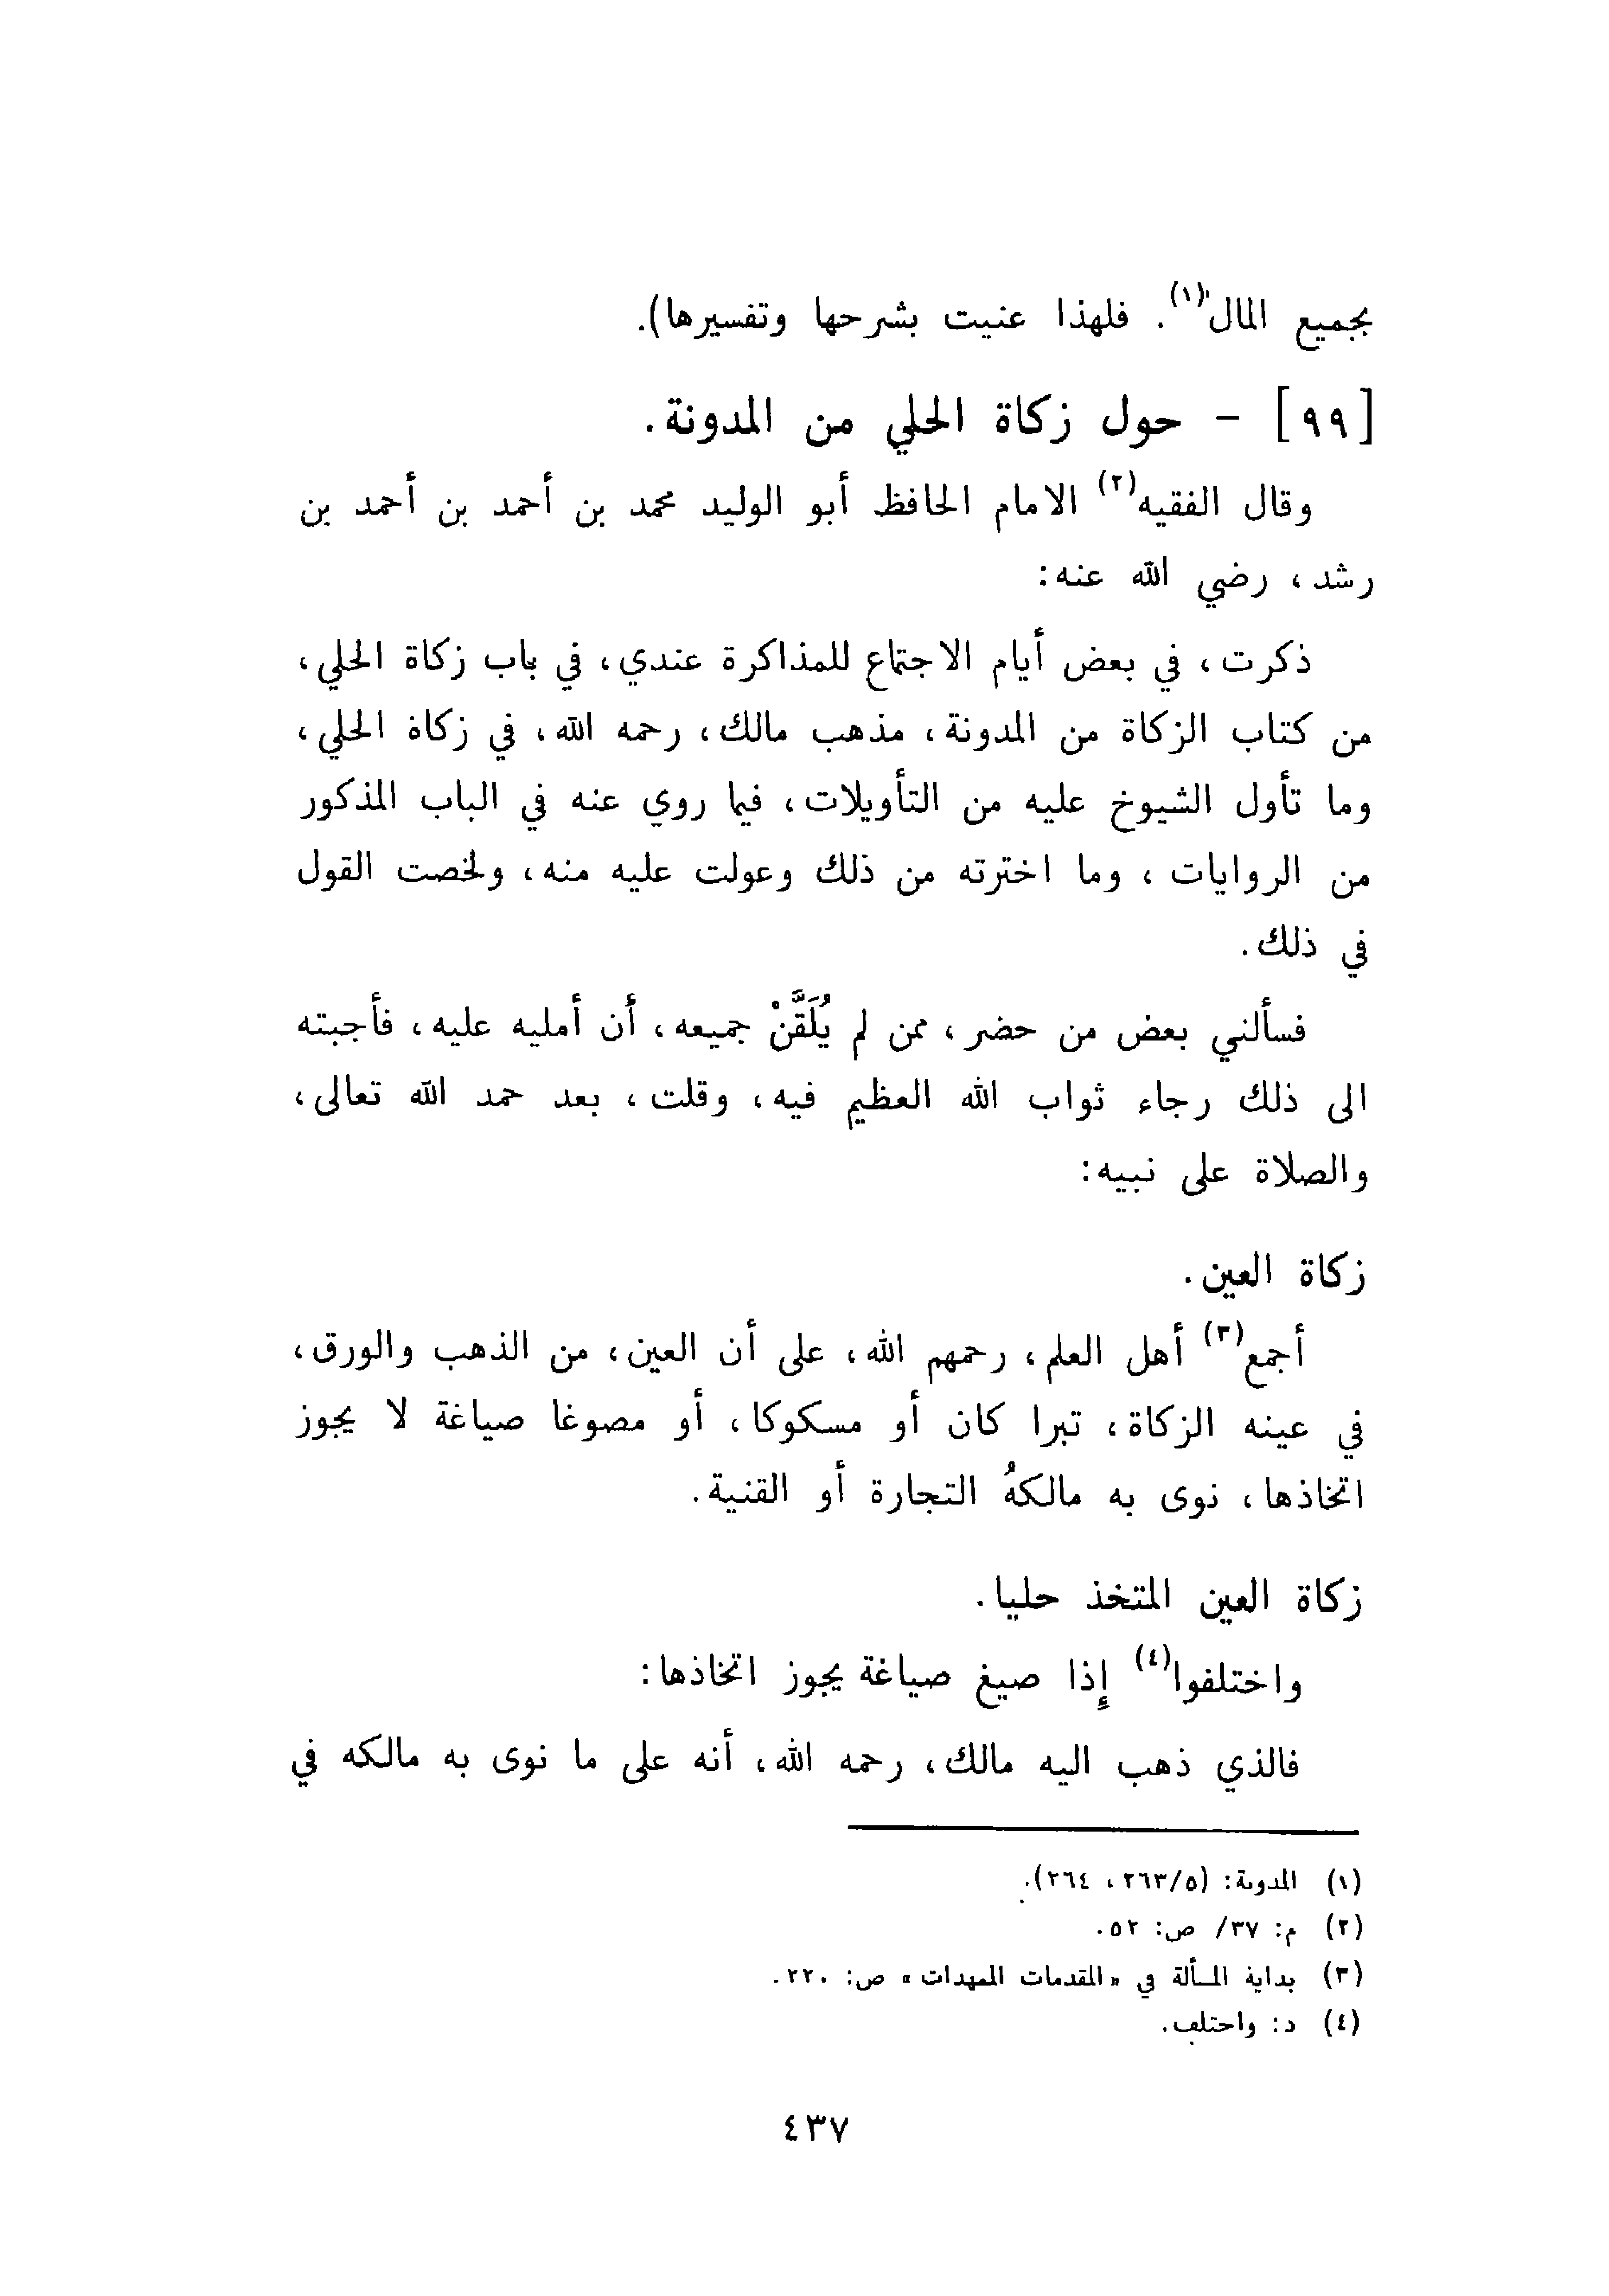 بجميع المال(١). فلهذا عنيت بشرحها وتفسيرها).
[٩٩] - حول زكاة الحلي من المدونة.
وقال الفقيه(٢) الامام الحافظ أبو الوليد محمد بن أحمد بن أحمد بن
رشد، رضي الله عنه:
ذكرت، في بعض أيام الاجتماع للمذاكرة عندي، في باب زكاة الحلي،
من كتاب الزكاة من المدونة، مذهب مالك، رحمه الله، في زكاة الحلي،
وما تأول الشيوخ عليه من التأويلات، فيما روي عنه في الباب المذكور
من الروايات، وما اخترته من ذلك وعولت عليه منه، ولخصت القول
في ذلك.
فسألني بعض من حضر، ممن لم يُلَقَّنْ جميعه، أن أمليه عليه، فأجبته
الى ذلك رجاء ثواب الله العظيم فيه، وقلت، بعد حمد الله تعالى،
والصلاة على نبيه:
زكاة العين.
أجمع(٣) أهل العلم، رحمهم الله، على أن العين، من الذهب والورق،
في عينه الزكاة، تبرا كان أو مسكوكا، أو مصوغا صياغة لا يجوز
اتخاذها، نوى به مالكهُ التجارة أو القنية.
زكاة العين المتخذ حليا.
واختلفوا(٤) إذا صيغ صياغة يجوز اتخاذها:
فالذي ذهب اليه مالك، رحمه الله، أنه على ما نوى به مالكه في
(١) المدونة: (٢٦٣/٥، ٢٦٤).
(٢) م: ٣٧/ ص: ٥٢.
(٣) بداية المسألة في «المقدمات الممهدات» ص: ٢٢٠.
(٤) د: واختلف.
٤٣٧